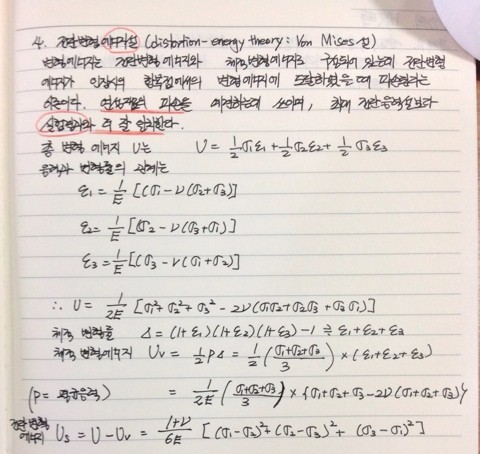 4. 전단변형 에너지설 (distortion-energy theory: Von Mises 설)
변형에너지는 전단변형에너지와 체적변형에너지로 구성되어 있는데 전단변형
에너지가 인장시의 항복점에서의 변형에너지에 도달하였을 때 파손된다는
이론이다. 연성재질의 파손을 예견하는데 쓰이며, 최대 전단응력설보다
실험결과와 더 잘 일치한다.
총 변형 에너지 U는 U = 1/2 σ1ε1 + 1/2 σ2ε2 + 1/2 σ3ε3
응력과 변형률의 관계는
ε1 = 1/E [(σ1 - ν(σ2+σ3)]
ε2 = 1/E [(σ2 - ν(σ3+σ1)]
ε3 = 1/E [(σ3 - ν(σ1+σ2)]
∴ U = 1/2E [σ1² + σ2² + σ3² - 2ν(σ1σ2 + σ2σ3 + σ3σ1)]
체적 변형률 Δ = (1+ε1)(1+ε2)(1+ε3) - 1 ≒ ε1+ε2+ε3
체적 변형에너지 Uv = 1/2 PΔ = 1/2 (σ1+σ2+σ3 / 3) × (ε1+ε2+ε3)
(P = 평균응력) = 1/2E (σ1+σ2+σ3 / 3) × {σ1+σ2+σ3 - 2ν(σ1+σ2+σ3)}
전단변형 에너지 Us = U - Uv = 1+ν / 6E [(σ1-σ2)² + (σ2-σ3)² + (σ3-σ1)²]